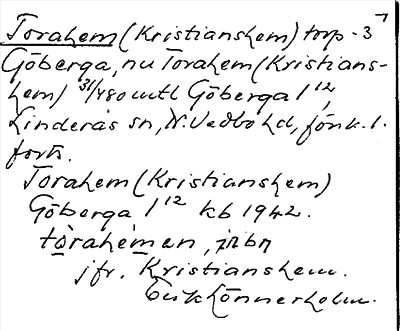 Torahem (Kristianshem) torp-3
Göberga, nu Torahem (Kristians-
hem) 31/480 mtl Göberga 1 12,
Linderås sn, N. Vedbo hd, Jönk. l.
forts.
Torahem (Kristianshem)
Göberga 1 12 kb 1942.
tòrahémen,
jfr. Kristianshem.
Erik Lönnerholm.